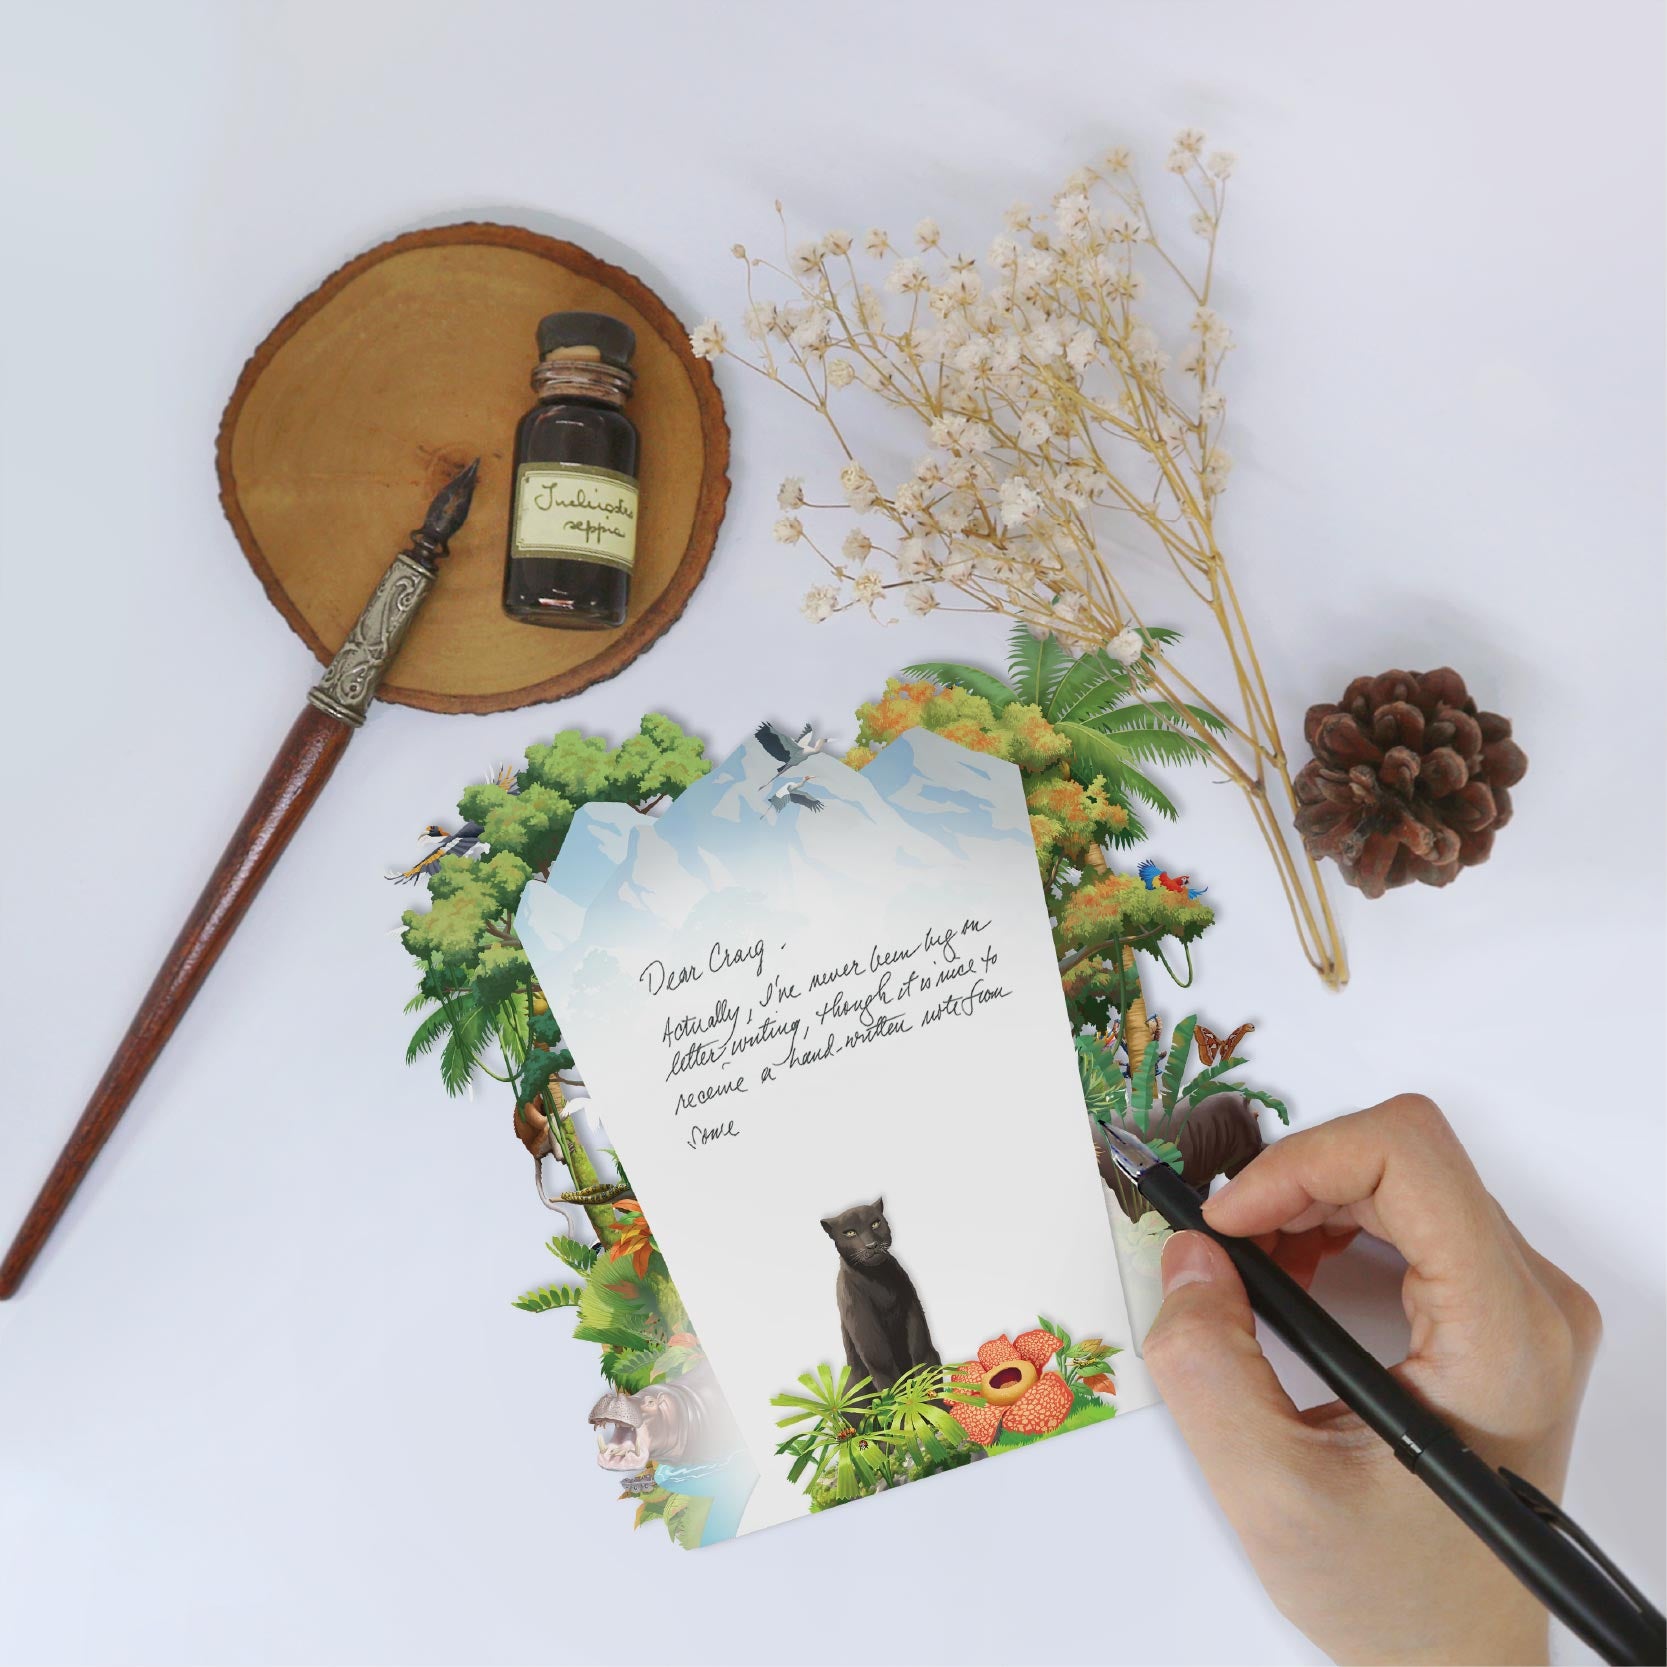 seppia
Dear Craig.
Actually, I've never been big on
letter-writing, though it is nice to
receive a hand-written note from
some